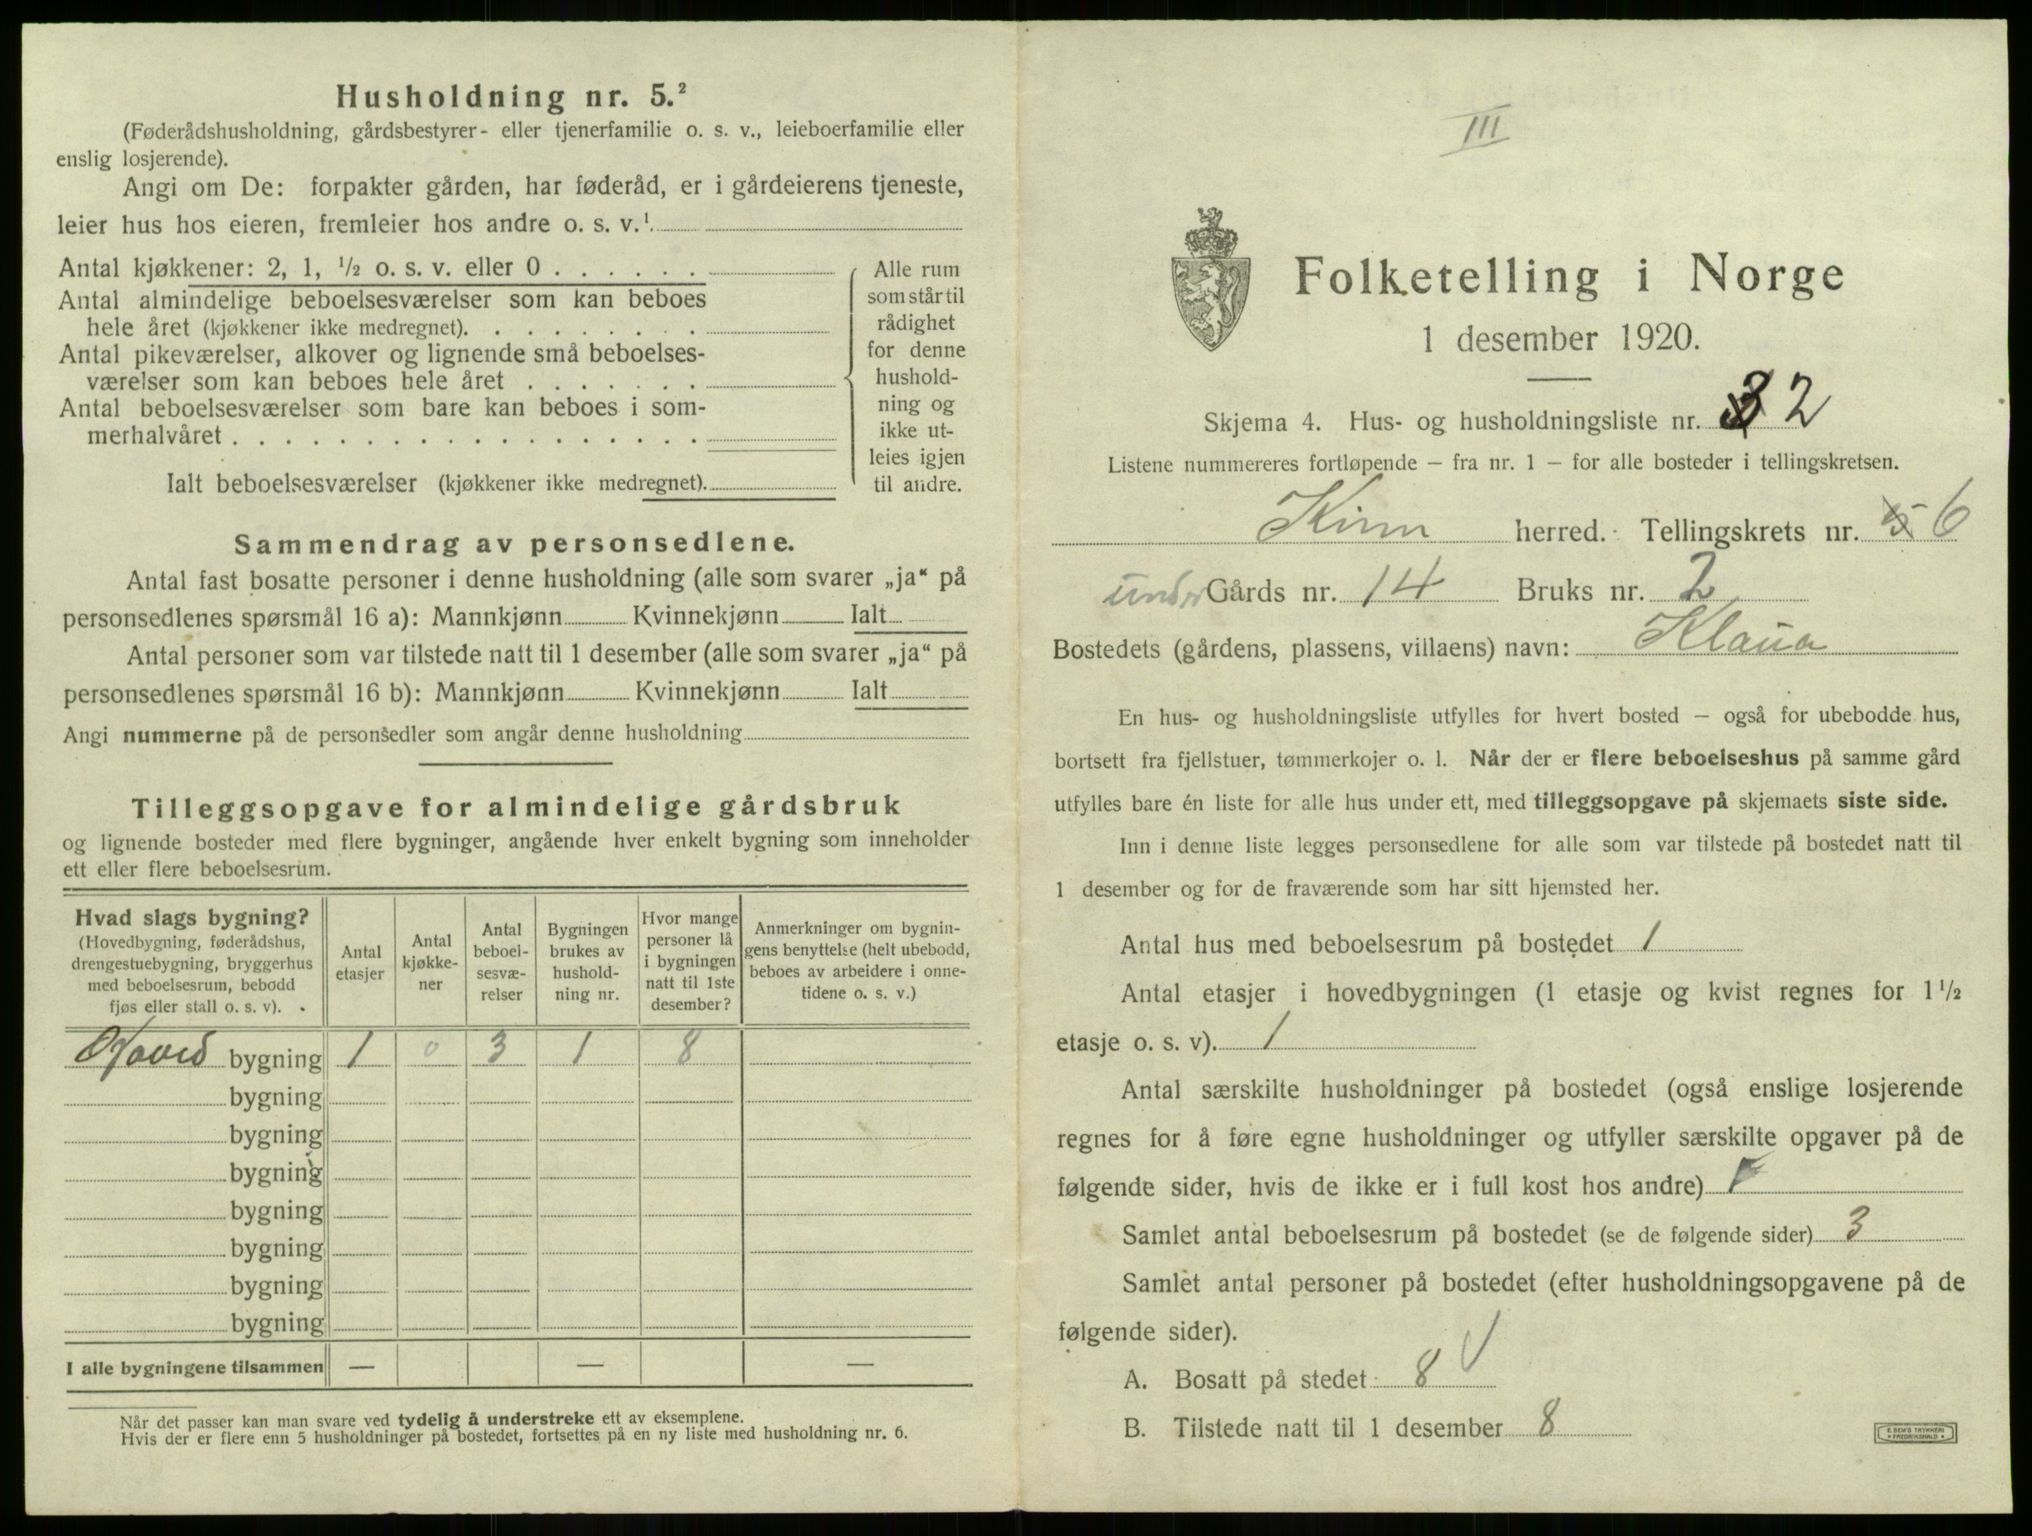 Husholdning nr. 5.²
(Føderådshusholdning, gårdsbestyrer- eller tjenerfamilie o. s. v., leieboerfamilie eller
enslig losjerende).
Angi om De: forpakter gården, har føderåd, er i gårdeierens tjeneste,
leier hus hos eieren, fremleier hos andre o. s. v.¹
Antal kjøkkener: 2, 1, ½ o. s. v. eller 0 . . . . . .
Antal almindelige beboelsesværelser som kan beboes
hele året (kjøkkener ikke medregnet). . . . . . . . .
Antal pikeværelser, alkover og lignende små beboelses-
værelser som kan beboes hele året . . . . . . .
Antal beboelsesværelser som bare kan beboes i som-
merhalvåret . . . . . . . . . . . . . . . . . .
Ialt beboelsesværelser (kjøkkener ikke medregnet).
Alle rum
som står til
rådighet
for denne
hushold-
ning og
ikke ut-
leies igjen
til andre.
Sammendrag av personsedlene.
Antal fast bosatte personer i denne husholdning (alle som svarer „ja“ på
personsedlenes spørsmål 16 a): Mannkjønn Kvinnekjønn Ialt
Antal personer som var tilstede natt til 1 desember (alle som svarer „ja“ på
personsedlenes spørsmål 16 b): Mannkjønn Kvinnekjønn Ialt
Angi nummerne på de personsedler som angår denne husholdning
Tilleggsopgave for almindelige gårdsbruk
og lignende bosteder med flere bygninger, angående hver enkelt bygning som inneholder
ett eller flere beboelsesrum.
Hvad slags bygning?
(Hovedbygning, føderådshus,
drengestuebygning, bryggerhus
med beboelsesrum, bebodd
fjøs eller stall o. s. v).
Antal
etasjer
Antal
kjøkke-
ner
Antal
beboel-
sesvæ-
relser
Bygningen
brukes av
hushold-
ning nr.
Hvor mange
personer lå
i bygningen
natt til 1ste
desember?
Anmerkninger om bygnin-
gens benyttelse (helt ubebodd,
beboes av arbeidere i onne-
tidene o. s. v.)
Hoved bygning 1 0 3 1 8
bygning
bygning
bygning
bygning
bygning
bygning
bygning
I alle bygningene tilsammen — — —
Når det passer kan man svare ved tydelig å understreke ett av eksemplene.
Hvis der er flere enn 5 husholdninger på bostedet, fortsettes på en ny liste med husholdning nr. 6.
III
Folketelling i Norge
1 desember 1920.
Skjema 4. Hus- og husholdningsliste nr. 2
Listene nummereres fortløpende — fra nr. 1 — for alle bosteder i tellingskretsen.
Kinn herred. Tellingskrets nr. 5 6
under Gårds nr. 14 Bruks nr. 2
Bostedets (gårdens, plassens, villaens) navn: Klaua
En hus- og husholdningsliste utfylles for hvert bosted — også for ubebodde hus,
bortsett fra fjellstuer, tømmerkojer o. l. Når der er flere beboelseshus på samme gård
utfylles bare én liste for alle hus under ett, med tilleggsopgave på skjemaets siste side.
Inn i denne liste legges personsedlene for alle som var tilstede på bostedet natt til
1 desember og for de fraværende som har sitt hjemsted her.
Antal hus med beboelsesrum på bostedet 1
Antal etasjer i hovedbygningen (1 etasje og kvist regnes for 1½
etasje o. s. v). 1
Antal særskilte husholdninger på bostedet (også enslige losjerende
regnes for å føre egne husholdninger og utfyller særskilte opgaver på de
følgende sider, hvis de ikke er i full kost hos andre)
Samlet antal beboelsesrum på bostedet (se de følgende sider) 3
Samlet antal personer på bostedet (efter husholdningsopgavene på de
følgende sider).
A. Bosatt på stedet 8
B. Tilstede natt til 1 desember 8
E. SEM'S TRYKKERI
FREDRIKSHALD